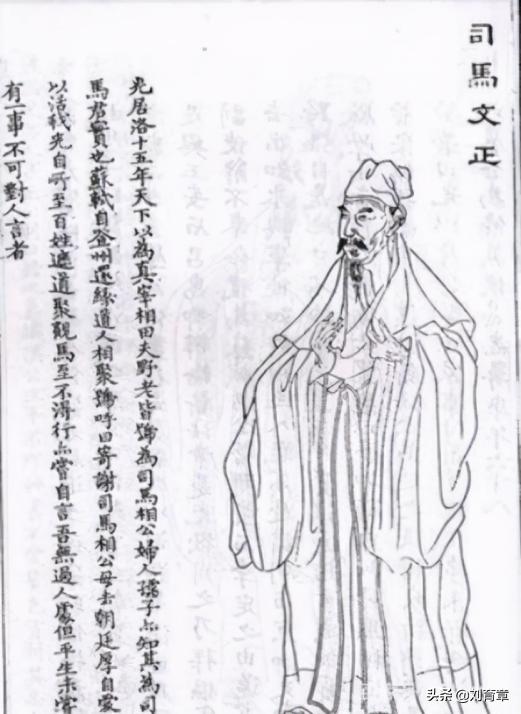 司馬文正
光居洛十五年天下以為真宰相田夫野老皆號為司馬相公婦人孺子亦知其為司
馬君實也蘇軾自登州還緣道人相聚號呼曰寄謝司馬相公毋去朝廷厚自愛
以活我光自所至百姓遮道聚觀馬至不得行亦嘗自言吾無過人處但平生未嘗
有一事不可對人言者
头条 @刘育章